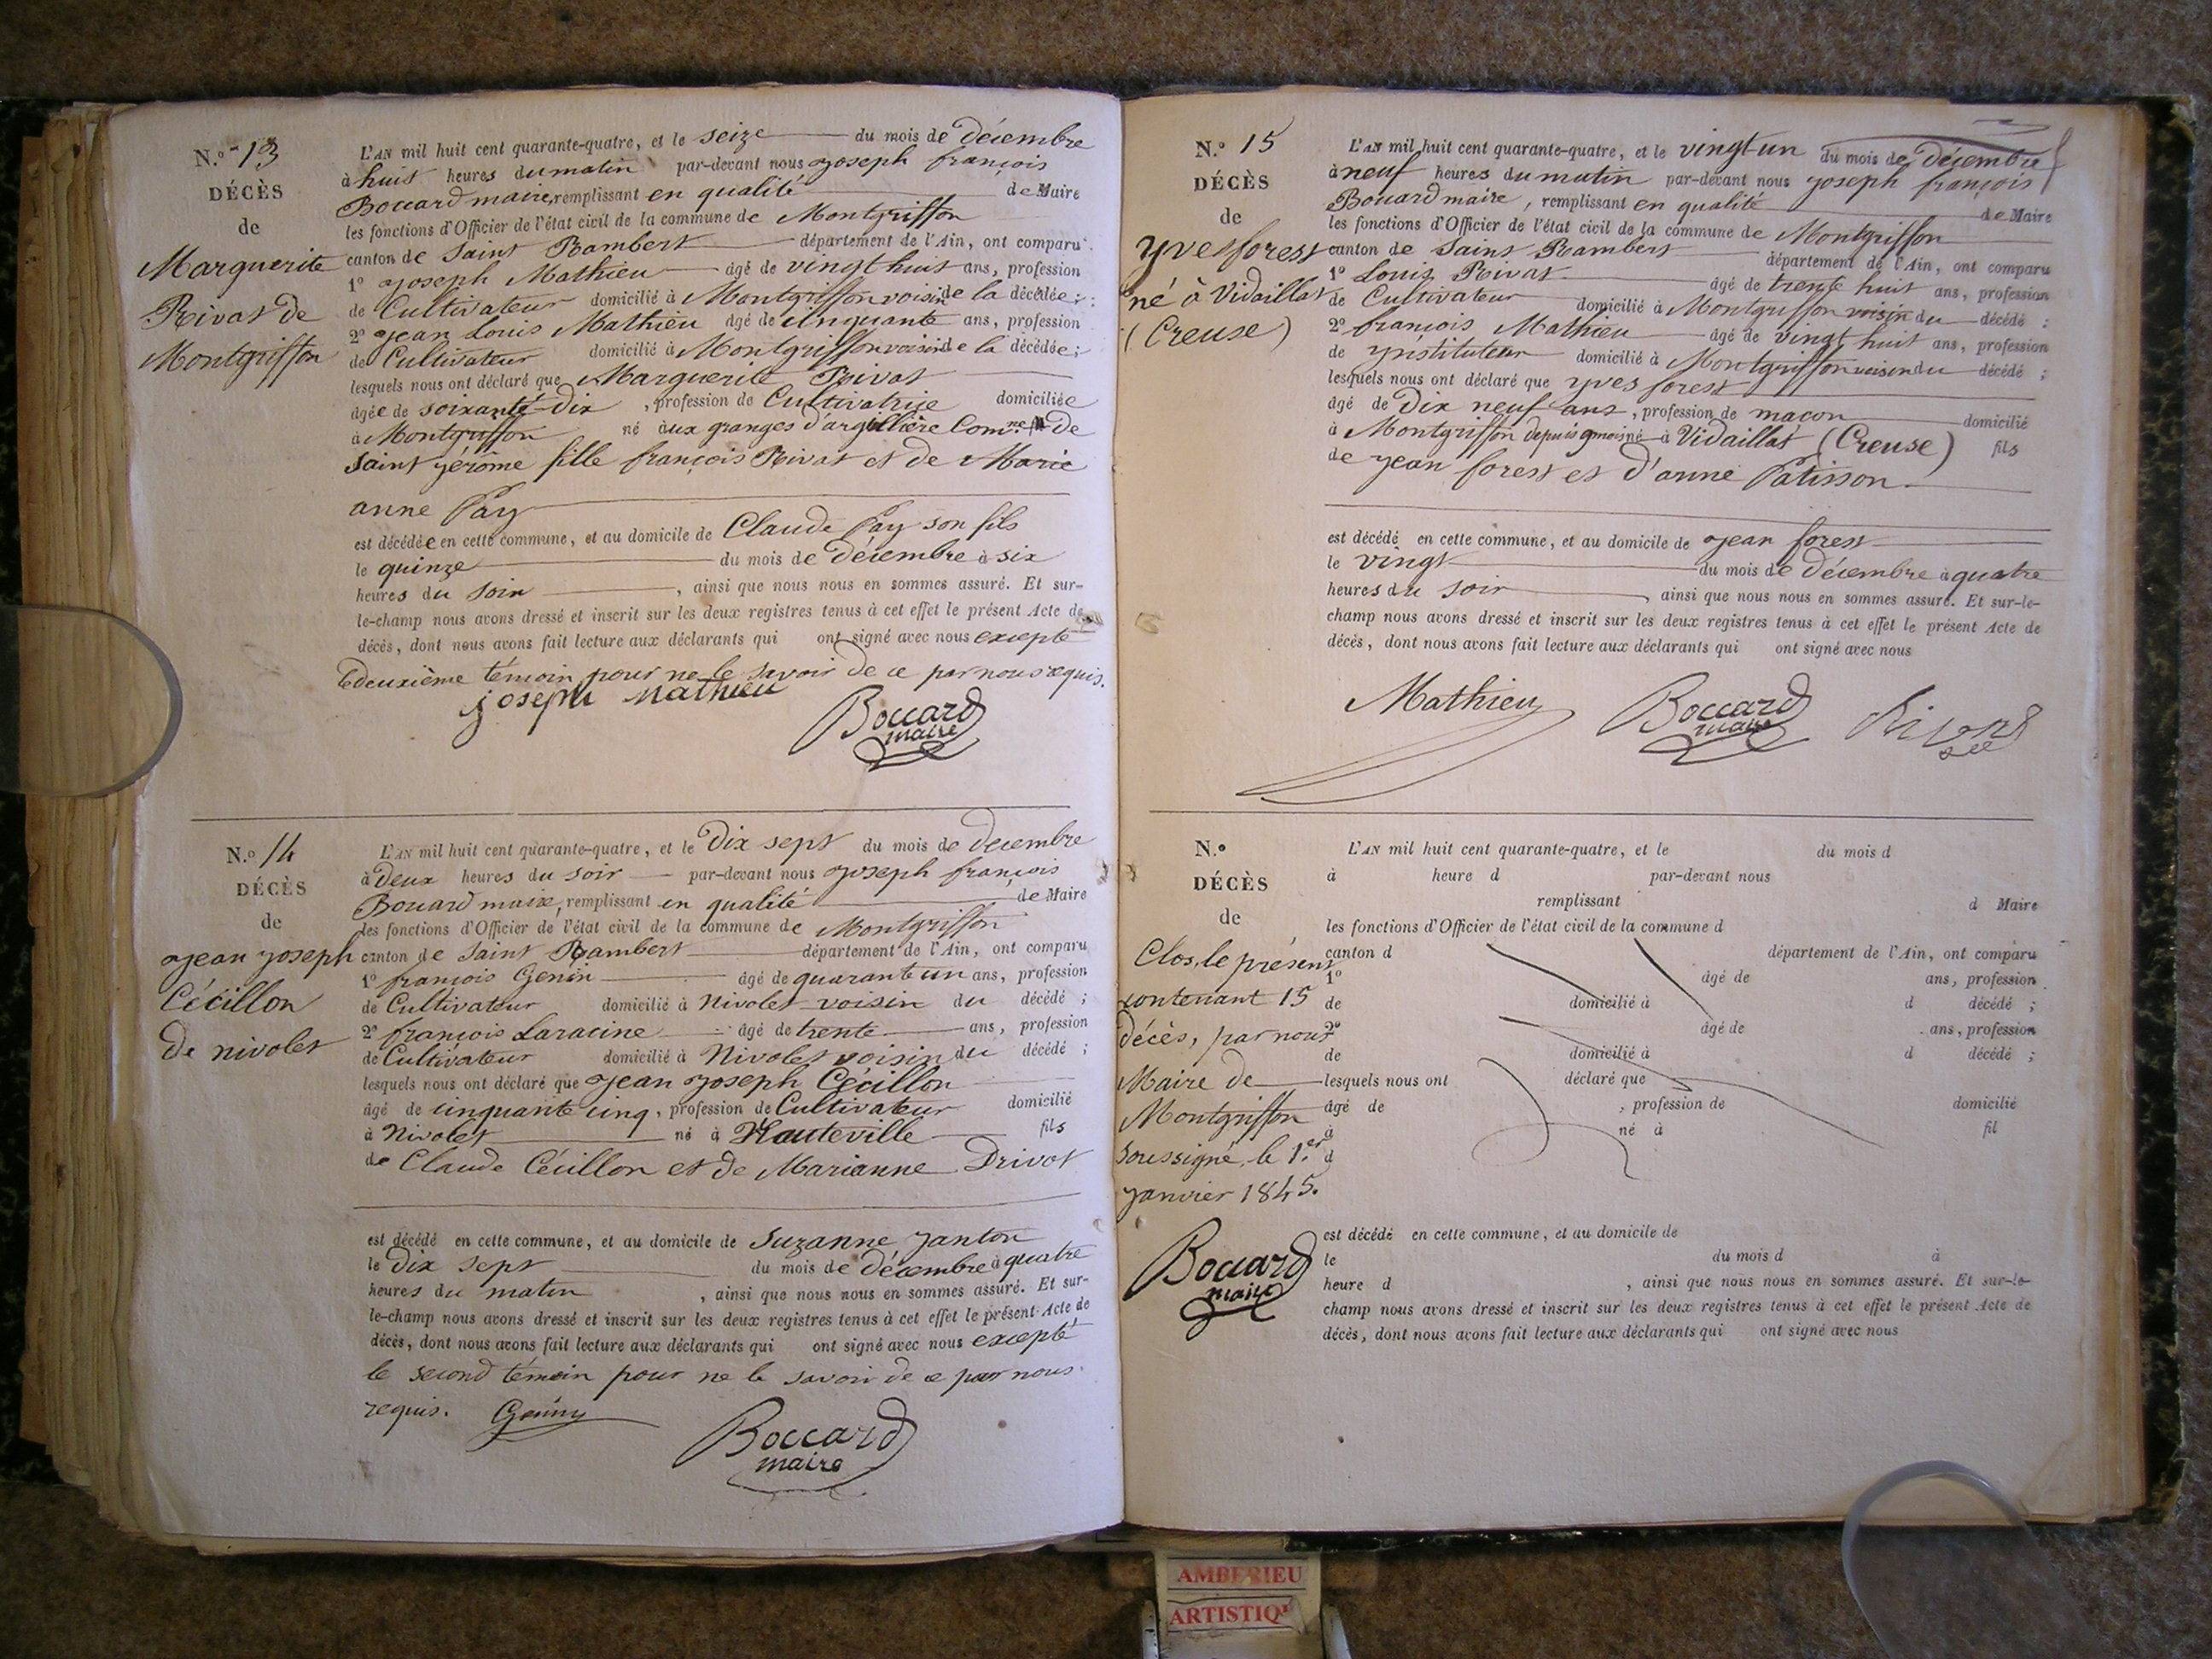 N.º 13
DÉCÈS
de
Marguerite
Rivat de
Montgriffon
L'AN mil huit cent quarante-quatre, et le seize du mois de décembre
à huit heures du matin par-devant nous joseph françois
Boccard maire, remplissant en qualité de Maire
les fonctions d'Officier de l'état civil de la commune de Montgriffon
canton de Saint Rambert département de l'Ain, ont comparu
1º joseph Mathieu âgé de vingt huit ans, profession
de Cultivateur domicilié à Montgriffon voisin de la décédée ;
2º jean Louis Mathieu âgé de cinquante ans, profession
de Cultivateur domicilié à Montgriffon voisin de la décédée ;
lesquels nous ont déclaré que Marguerite Rivat
âgée de soixante-dix , profession de Cultivatrice domiciliée
à Montgriffon né aux granges d'argillière Com.ne de
saint jérôme fille françois Rivat et de Marie
anne Pay
est décédée en cette commune, et au domicile de Claude Pay son fils
le quinze du mois de décembre à six
heures du soir , ainsi que nous nous en sommes assuré. Et sur-
le-champ nous avons dressé et inscrit sur les deux registres tenus à cet effet le présent Acte de
décès, dont nous avons fait lecture aux déclarants qui ont signé avec nous excepté
le deuxième témoin pour ne le savoir de ce par nous requis.
joseph mathieu
Boccard
maire
N.º 14
DÉCÈS
de
jean joseph
Cécillon
de nivolet
L'AN mil huit cent quarante-quatre, et le Dix sept du mois de décembre
à Deux heures du soir par-devant nous joseph françois
Boccard maire, remplissant en qualité de Maire
les fonctions d'Officier de l'état civil de la commune de Montgriffon
canton de Saint Rambert département de l'Ain, ont comparu
1º françois Genin âgé de quarante un ans, profession
de Cultivateur domicilié à Nivolet voisin du décédé ;
2º françois Laracine âgé de trente ans, profession
de Cultivateur domicilié à Nivolet voisin du décédé ;
lesquels nous ont déclaré que jean joseph Cécillon
âgé de cinquante cinq, profession de Cultivateur domicilié
à Nivolet né à Hauteville fils
de Claude Cécillon et de Marianne Drivot
est décédé en cette commune, et au domicile de Suzanne janton
le Dix sept du mois de décembre à quatre
heures du matin , ainsi que nous nous en sommes assuré. Et sur-
le-champ nous avons dressé et inscrit sur les deux registres tenus à cet effet le présent Acte de
décès, dont nous avons fait lecture aux déclarants qui ont signé avec nous excepté
le second témoin pour ne le savoir de ce par nous
requis.
Boccard
maire
N.º 15
DÉCÈS
de
yves forest
né à Vidaillat
(Creuse)
L'AN mil huit cent quarante-quatre, et le vingt un du mois de décembre
à neuf heures du matin par-devant nous joseph françois
Boccard maire, remplissant en qualité de Maire
les fonctions d'Officier de l'état civil de la commune de Montgriffon
canton de Saint Rambert département de l'Ain, ont comparu
1º Louis Rivat âgé de trente huit ans, profession
de Cultivateur domicilié à Montgriffon voisin du décédé ;
2º françois Mathieu âgé de vingt huit ans, profession
de ynstituteur domicilié à Montgriffon voisin du décédé ;
lesquels nous ont déclaré que yves forest
âgé de Dix neuf ans, profession de maçon domicilié
à Montgriffon depuis 9 mois né à Vidaillat (Creuse) fils
de jean forest et d'anne Patisson
est décédé en cette commune, et au domicile de jean forest
le vingt du mois de décembre à quatre
heures du soir , ainsi que nous nous en sommes assuré. Et sur-le-
champ nous avons dressé et inscrit sur les deux registres tenus à cet effet le présent Acte de
décès, dont nous avons fait lecture aux déclarants qui ont signé avec nous
Mathieu
Boccard
maire
N.º
DÉCÈS
de
Clos, le présent
contenant 15
décès, par nous
Maire de
Montgriffon
soussigné, le 1.er
janvier 1845.
Boccard
maire
L'AN mil huit cent quarante-quatre, et le du mois d
à heure d par-devant nous
remplissant d Maire
les fonctions d'Officier de l'état civil de la commune d
canton d département de l'Ain, ont comparu
1º âgé de ans, profession
de domicilié à d décédé ;
2º âgé de ans, profession
de domicilié à d décédé ;
lesquels nous ont déclaré que
âgé de , profession de domicilié
à né à fil
d
est décédé en cette commune, et au domicile de
le du mois d à
heure d , ainsi que nous nous en sommes assuré. Et sur-le-
champ nous avons dressé et inscrit sur les deux registres tenus à cet effet le présent Acte de
décès, dont nous avons fait lecture aux déclarants qui ont signé avec nous
AMBERIEU
ARTISTIQ